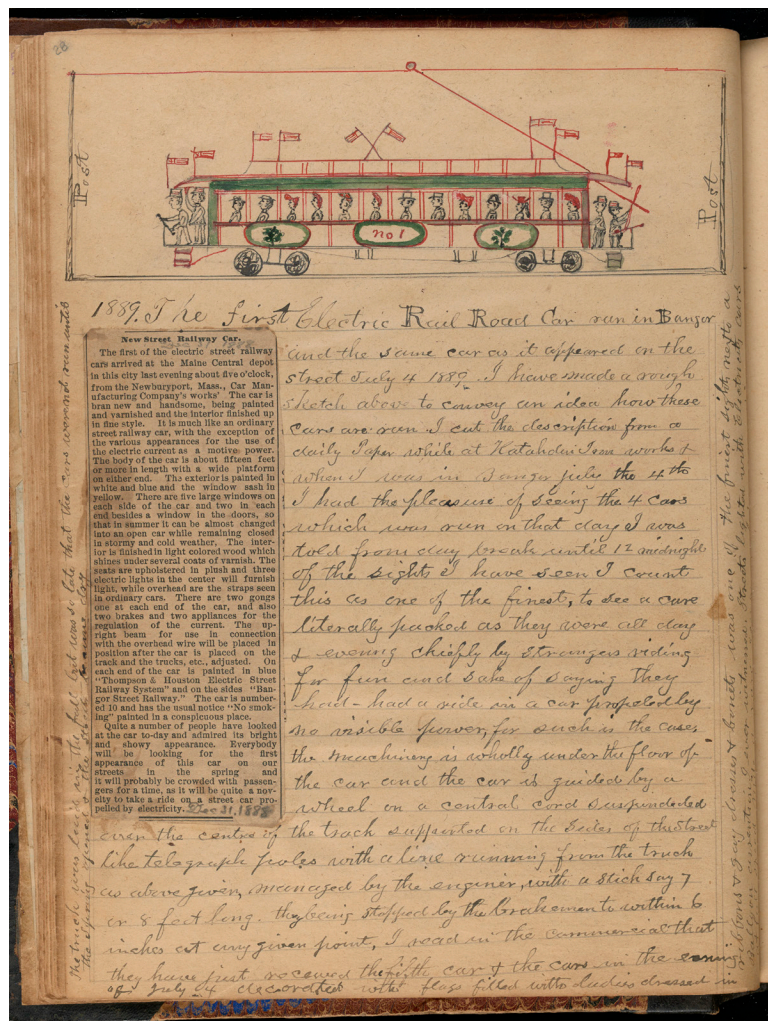 28
Post
Post
no 1
1889. The first Electric Rail Road Car run in Bangor
New Street Railway Car.
The first of the electric street railway
cars arrived at the Maine Central depot
in this city last evening about five o'clock,
from the Newburyport, Mass., Car Man-
ufacturing Company's works' The car is
bran new and handsome, being painted
and varnished and the interior finished up
in fine style. It is much like an ordinary
street railway car, with the exception of
the various appearances for the use of
the electric current as a motive power.
The body of the car is about fifteen feet
or more in length with a wide platform
on either end. The exterior is painted in
white and blue and the window sash in
yellow. There are five large windows on
each side of the car and two in each
end besides a window in the doors, so
that in summer it can be almost changed
into an open car while remaining closed
in stormy and cold weather. The inter-
ior is finished in light colored wood which
shines under several coats of varnish. The
seats are upholstered in plush and three
electric lights in the center will furnish
light, while overhead are the straps seen
in ordinary cars. There are two gongs
one at each end of the car, and also
two brakes and two appliances for the
regulation of the current. The up-
right beam for use in connection
with the overhead wire will be placed in
position after the car is placed on the
track and the trucks, etc., adjusted. On
each end of the car is painted in blue
"Thompson & Houston Electric Street
Railway System" and on the sides "Ban-
gor Street Railway." The car is number-
ed 10 and has the usual notice "No smok-
ing" painted in a conspicous place.
Quite a number of people have looked
at the car to-day and admired its bright
and showy appearance. Everybody
will be looking for the first
appearance of this car on our
streets in the spring and
it will probably be crowded with passen-
gers for a time, as it will be quite a nov-
elty to take a ride on a street car pro-
pelled by electricity. Dec 31, 1888
and the same car as it appeared on the
street July 4 1889. I have made a rough
sketch above to convey an idea how these
cars are run I cut the description from a
daily Paper while at Katahdin Iron works &
when I was in Bangor july the 4th
I had the pleasure of seeing the 4 cars
which was run on that day I was
told from day break until 12 midnight
of the sights I have seen I count
this as one of the finest, to see a care
literally packed as they were all day
& evening chiefly by strangers riding
for fun and sake of saying they
had - had a ride in a car propeled by
no visible power, for such is the case,
the machinery is wholly under the floor of
the car and the car is guided by a
wheel on a central cord suspended
over the centre of the track supported on the sides of the street
like telegraph poles with a line running from the truck
as above given, managed by the enginer, with a stick say 7
or 8 feet long. they being stopped by the brakemen to within 6
inches at any given point, I read in the commercial that
they have just received the fifth car & the cars in the evening
of July 4 decorated with flags filled with ladies dressed in
ribbons & gay dresses & bonets was one of the finest sight next to a
The track was laid in the fall but was so late that the cars were not run until
the spring opened